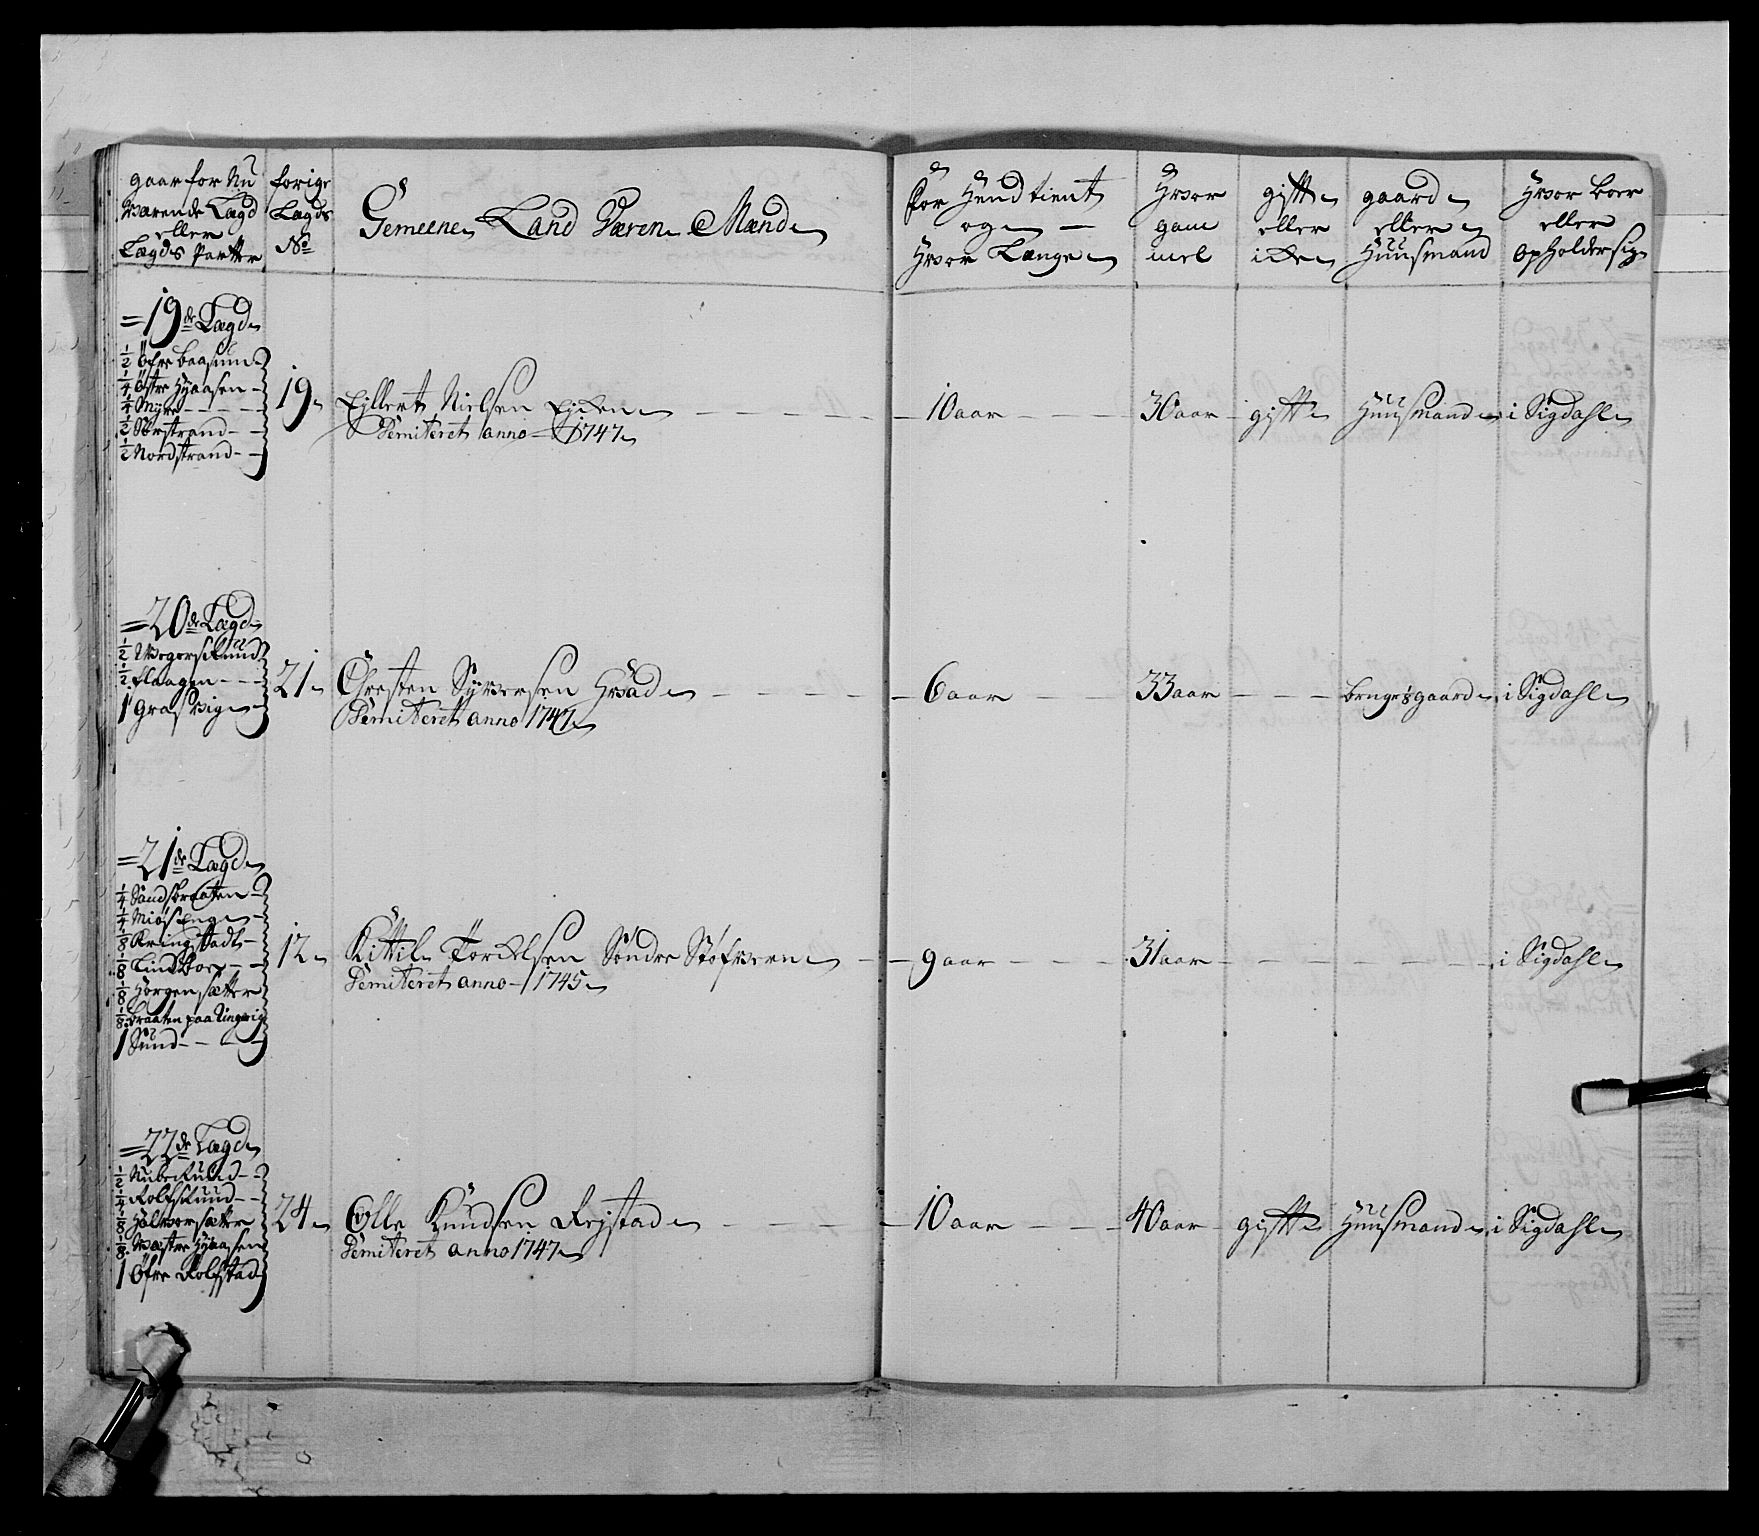 gaar for Nu
værende Lægd
eller
Lægds Partter
forige
Lægds
No
Gemeene Land Væren Mænd
For Hend tient
og
Hvor Længe
Hvor
gam
mel
gift
eller
icke
gaard
eller
Huusmand
Hvor boer
eller
opholder sig
=19de Lægd
1/2 Øfre baasum
1/4 Østre Hÿaasen
1/4 Myre
1/2 Sørstrand
1/2 Nordstrand
19 Eÿllert Nielsen Eÿcken
Demiteret anno 1747
10 aar
30 aar
gift
Huusmand
i Sigdahl
=20de Lægd
1/2 Wegersrund
1/2 Haagen
1 Grasvig
21 Chresten Syversen Hvad
Demiteret anno 1747
6 aar
33 aar
brugs gaard
i Sigdahl
=21de Lægd
1/4 Sandsbraatten
1/4 Miøs Enge
1/8 Kringstadt
1/8 Lindborg
1/8 Hørgensætter
1/8 braaten paa Ringerig
1 Sund
12 Kittil Torkelsen Søndre Støfvern
Demiteret anno 1745
9 aar
31 aar
i Sigdahl
=22de Lægd
1/2 Nuberud
1/4 Rolfsrund
1/8 Halvorsætter
1/8 Wæstre Hÿaasen
1 Øfre Rolfstad
24 Olle Knudsen Reÿstad
Demiteret anno 1747
10 aar
40 aar
gift
Huusmand
i Sigdahl